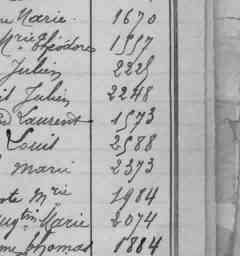 Marie 1670
Mrie Théodore 1557
Julien 2325
Julien 2248
Laurent 1573
Louis 2588
Marie 2373
Mrie 1984
Marie 2074
Thomas 1884